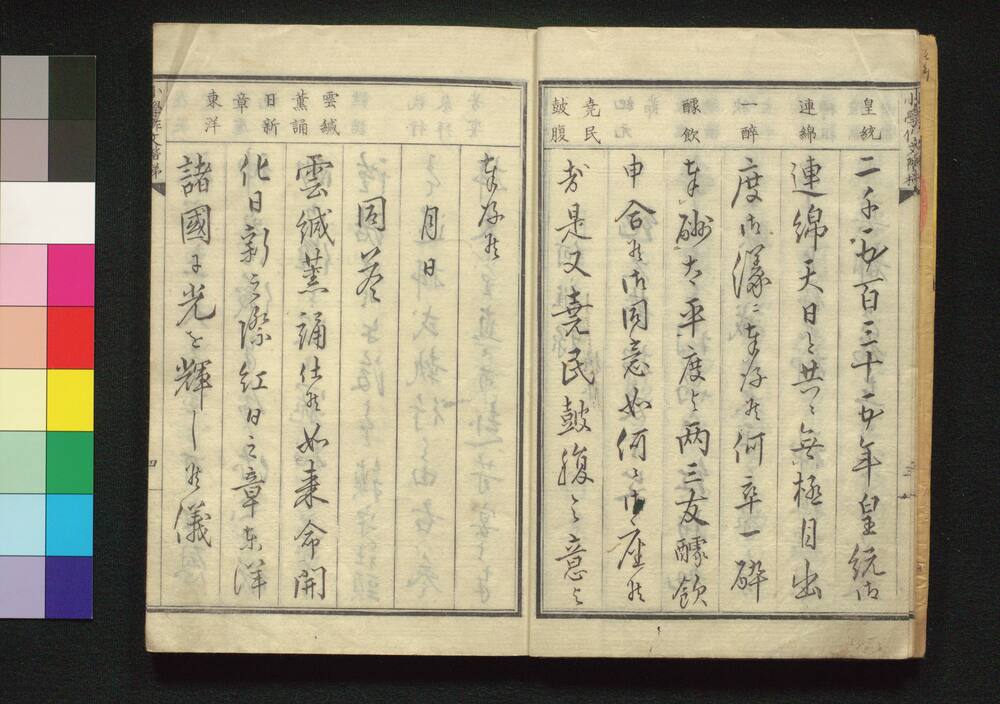 皇統
連綿
一醉
醵飲
尭民
鼓腹
二千五百三十五年皇統御
連綿天日と共ニ無極目出
度御儀ニ奉存候何卒一醉
奉酬太平度と両三友醵飲
申合候御同意如何ニ御座候
哉是又堯民鼓腹之意と
雲緘
薫誦
日新
章
東洋
奉存候
月日
仝同答
雲緘薫誦仕候如来命開
化日新之際紅日之章東洋
諸國に光を輝し候儀
小學作文階梯
四